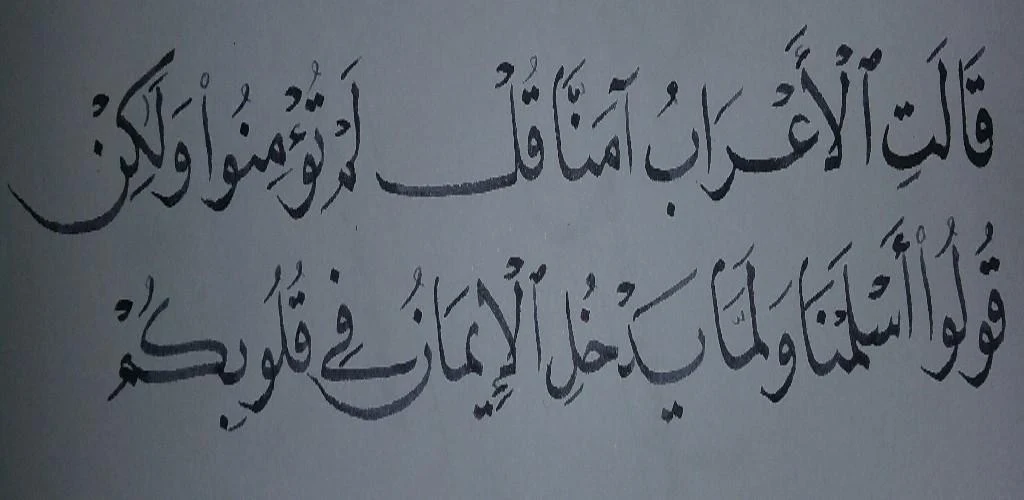 قَالَتِ ٱلْأَعْرَابُ آمَنَّا قُلْ لَمْ تُؤْمِنُوا۟ وَلَٰكِنْ
قُولُوا۟ أَسْلَمْنَا وَلَمَّا يَدْخُلِ ٱلْإِيمَانُ فِي قُلُوبِكُمْ